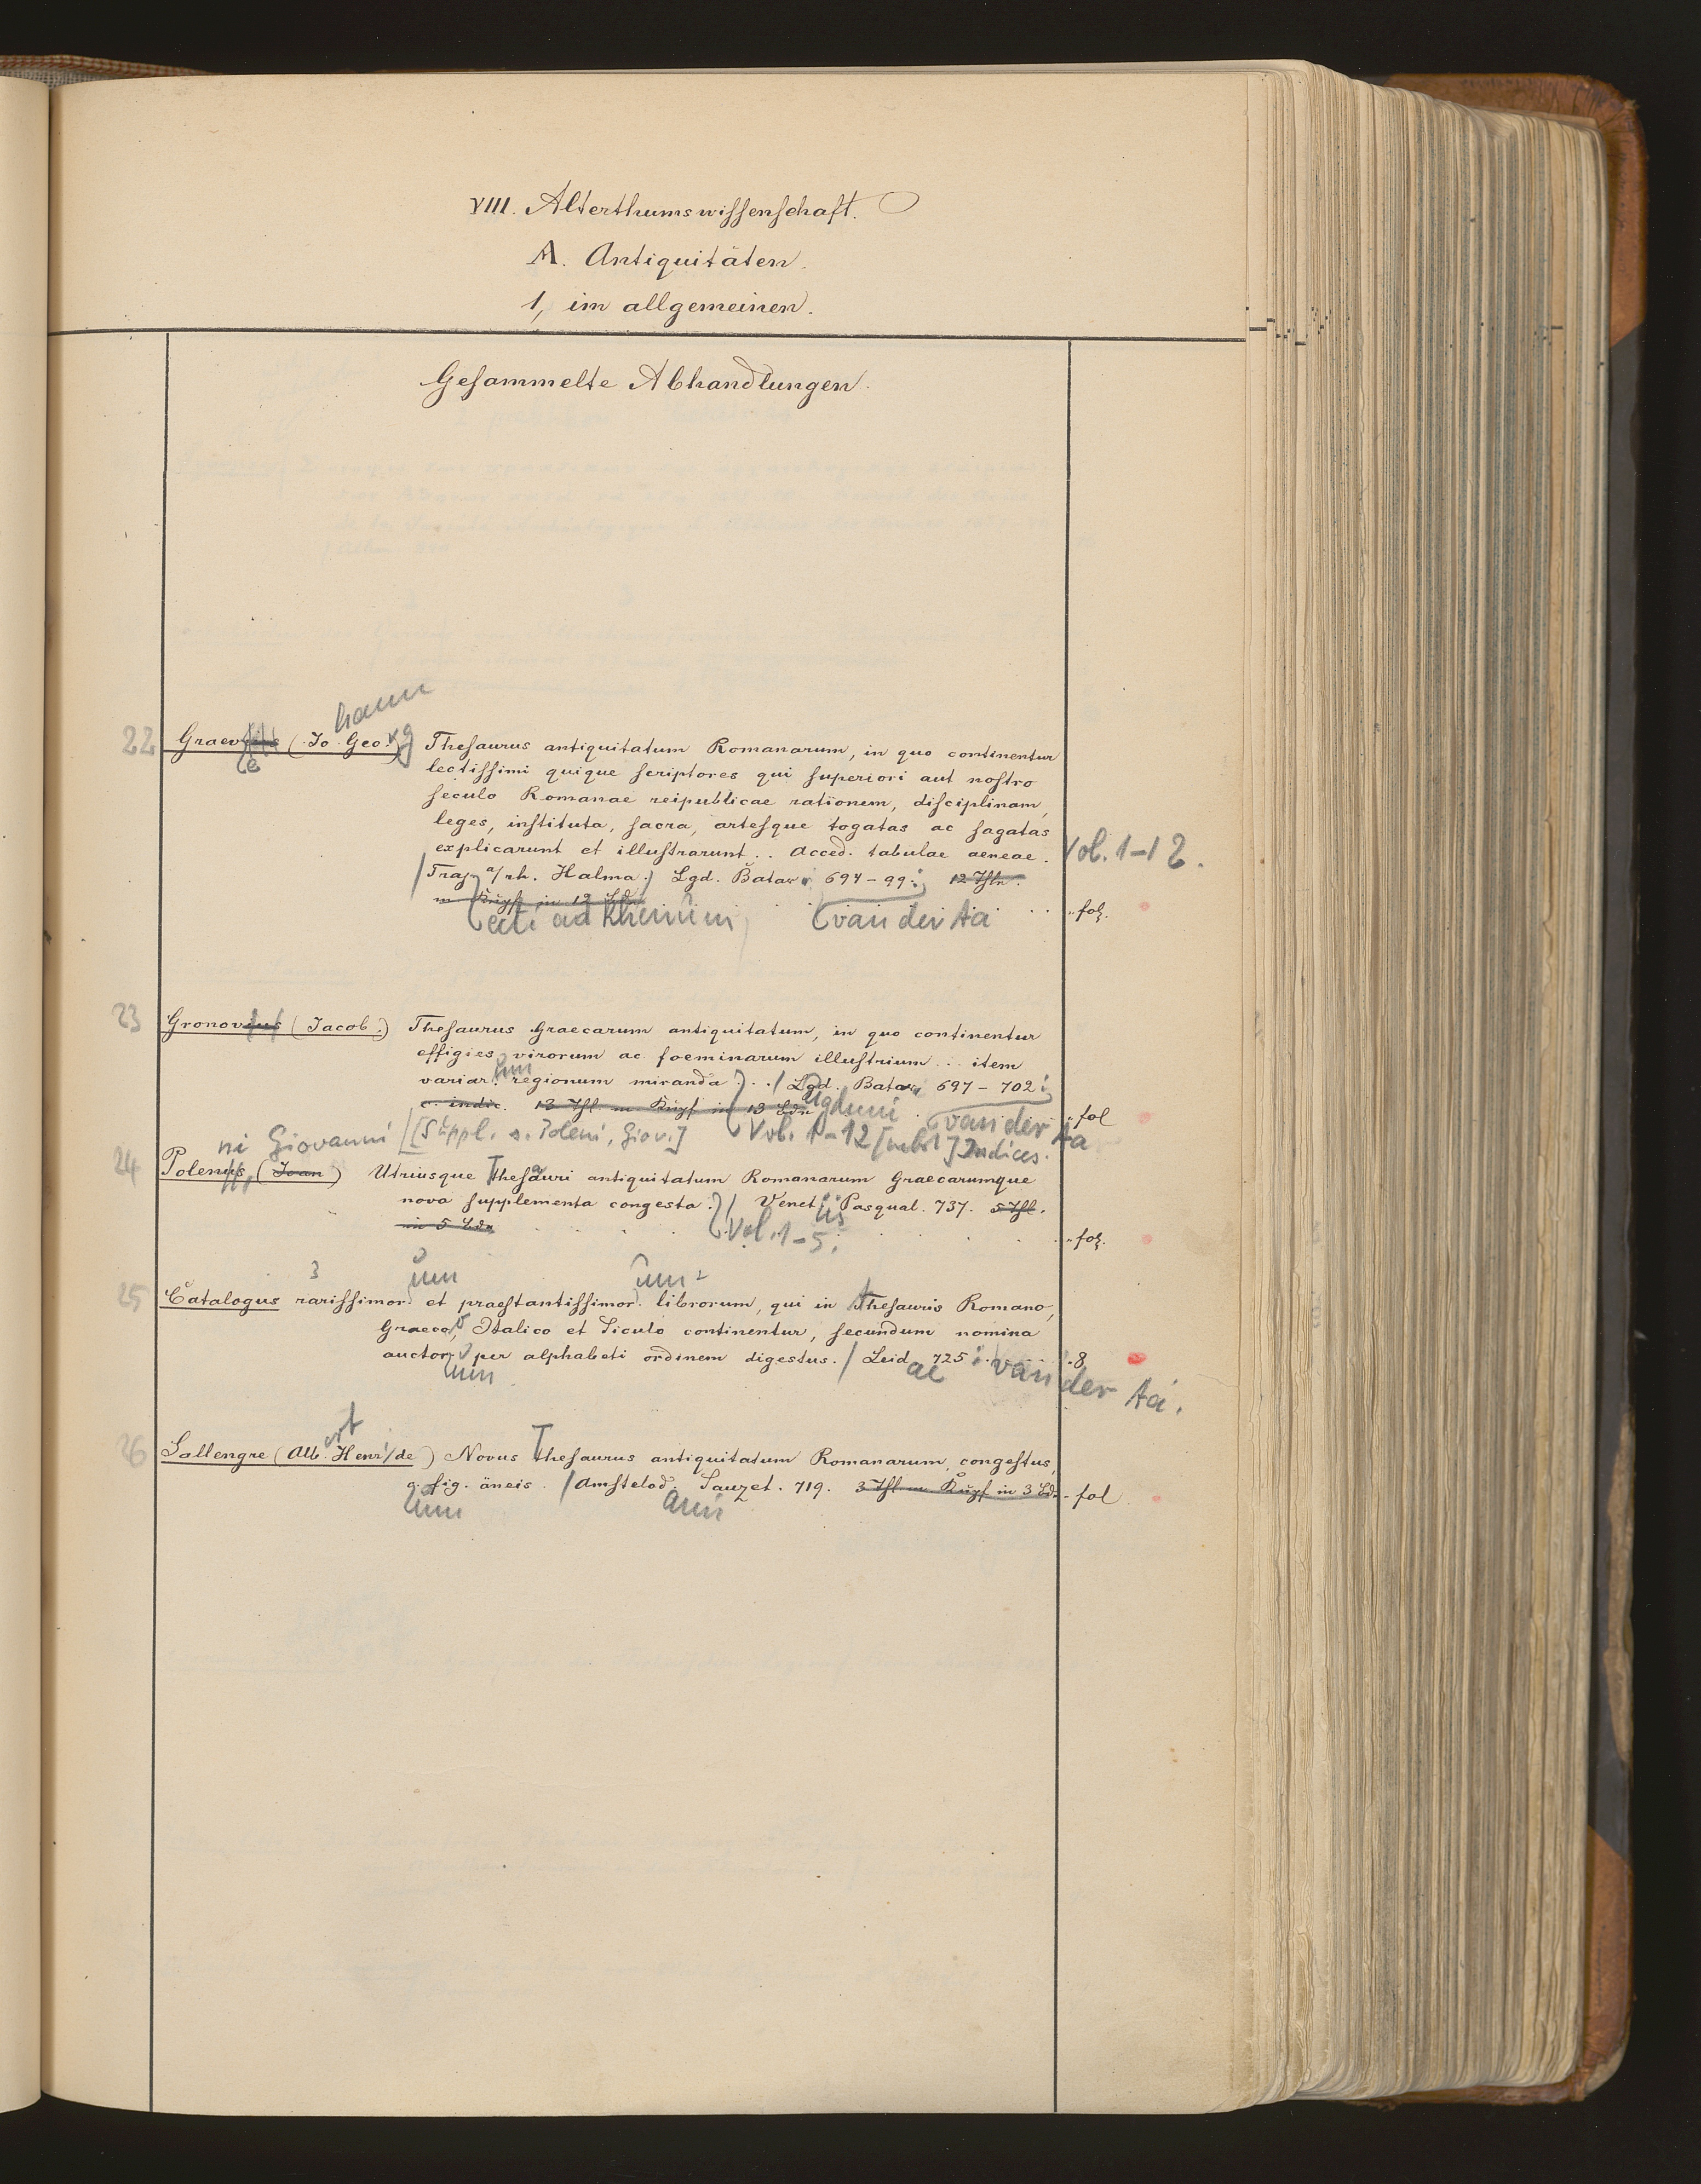 VIII. Alterthumswissenschaft.
A. Antiquitäten.
1, im allgemeinen.
Gesammelte Abhandlungen.
hann
22 Graevius (Jo. Geo. rg) Thesaurus antiquitatum Romanarum, in quo continentur
e
lectissimi quique scriptores qui superiori aut nostro
seculo Romanae reipublicae rationem, disciplinam,
leges, instituta, sacra, artesque togatas ac sagatas
explicarunt et illustrarunt.. Acced. tabulae aeneae. Vol. 1-12.
Traj. a/rh. Halma.) Lgd. Batav. 694-99. 12 Thle.
m Kupf in 12 Bdn fol.
ecti ad Rhenum van der Aa
23 Gronovius (Jacob.) Thesaurus Graecarum antiquitatum, in quo continentur
effigies virorum ac foeminarum illustrium ... item
um
variar. regionum miranda ... / Lgd. Batav. 697-702;
c. indic. 13 Thl. m Kupf in 13 Bdn ugduni van der Aa fol
[Suppl. s. Poleni, Giov.] Vol. 1-12 [nebst] Indices.
ni Giovanni
24 Polenus, (Joan) Utriusque Thesauri antiquitatum Romanarum Graecarumque
nova supplementa congesta. / Venet. iis Pasqual. 737. 5 Thl.
in 5 Bdn Vol. 1-5. fol.
3 um um 2
25 Catalogus rarissimor. et praestantissimor. librorum, qui in Thesauris Romano,
Graeco, Italico et Siculo continentur, secundum nomina
auctor. per alphabeti ordinem digestus. / Leid. 725 8
um ae van der Aa.
26 Sallengre (Alb. Henri de) Novus Thesaurus antiquitatum Romanarum, congestus,
c. fig. äneis. / Amstelod. Sauzet. 719. 3 Thl. m Kupf in 3 Bdn fol
um ami